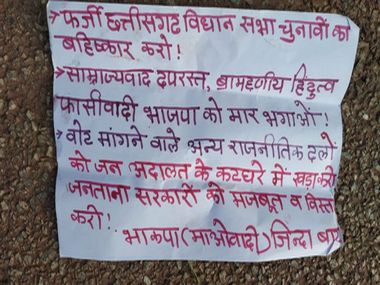 → फर्जी छत्तीसगढ़ विधान सभा चुनावों का
बहिष्कार करो!
→ साम्राज्यवाद दपरस्त, ब्रामहणीय हिंदुत्व
फासीवादी भाजपा को मार भगाओ!
→ वोट मांगने वाले अन्य राजनीतिक दलों
को जन अदालत के कटघरे में खड़ा करो
जनताना सरकारों को मजबूत व
करो!
भाकपा (माओवादी) जिन्दा